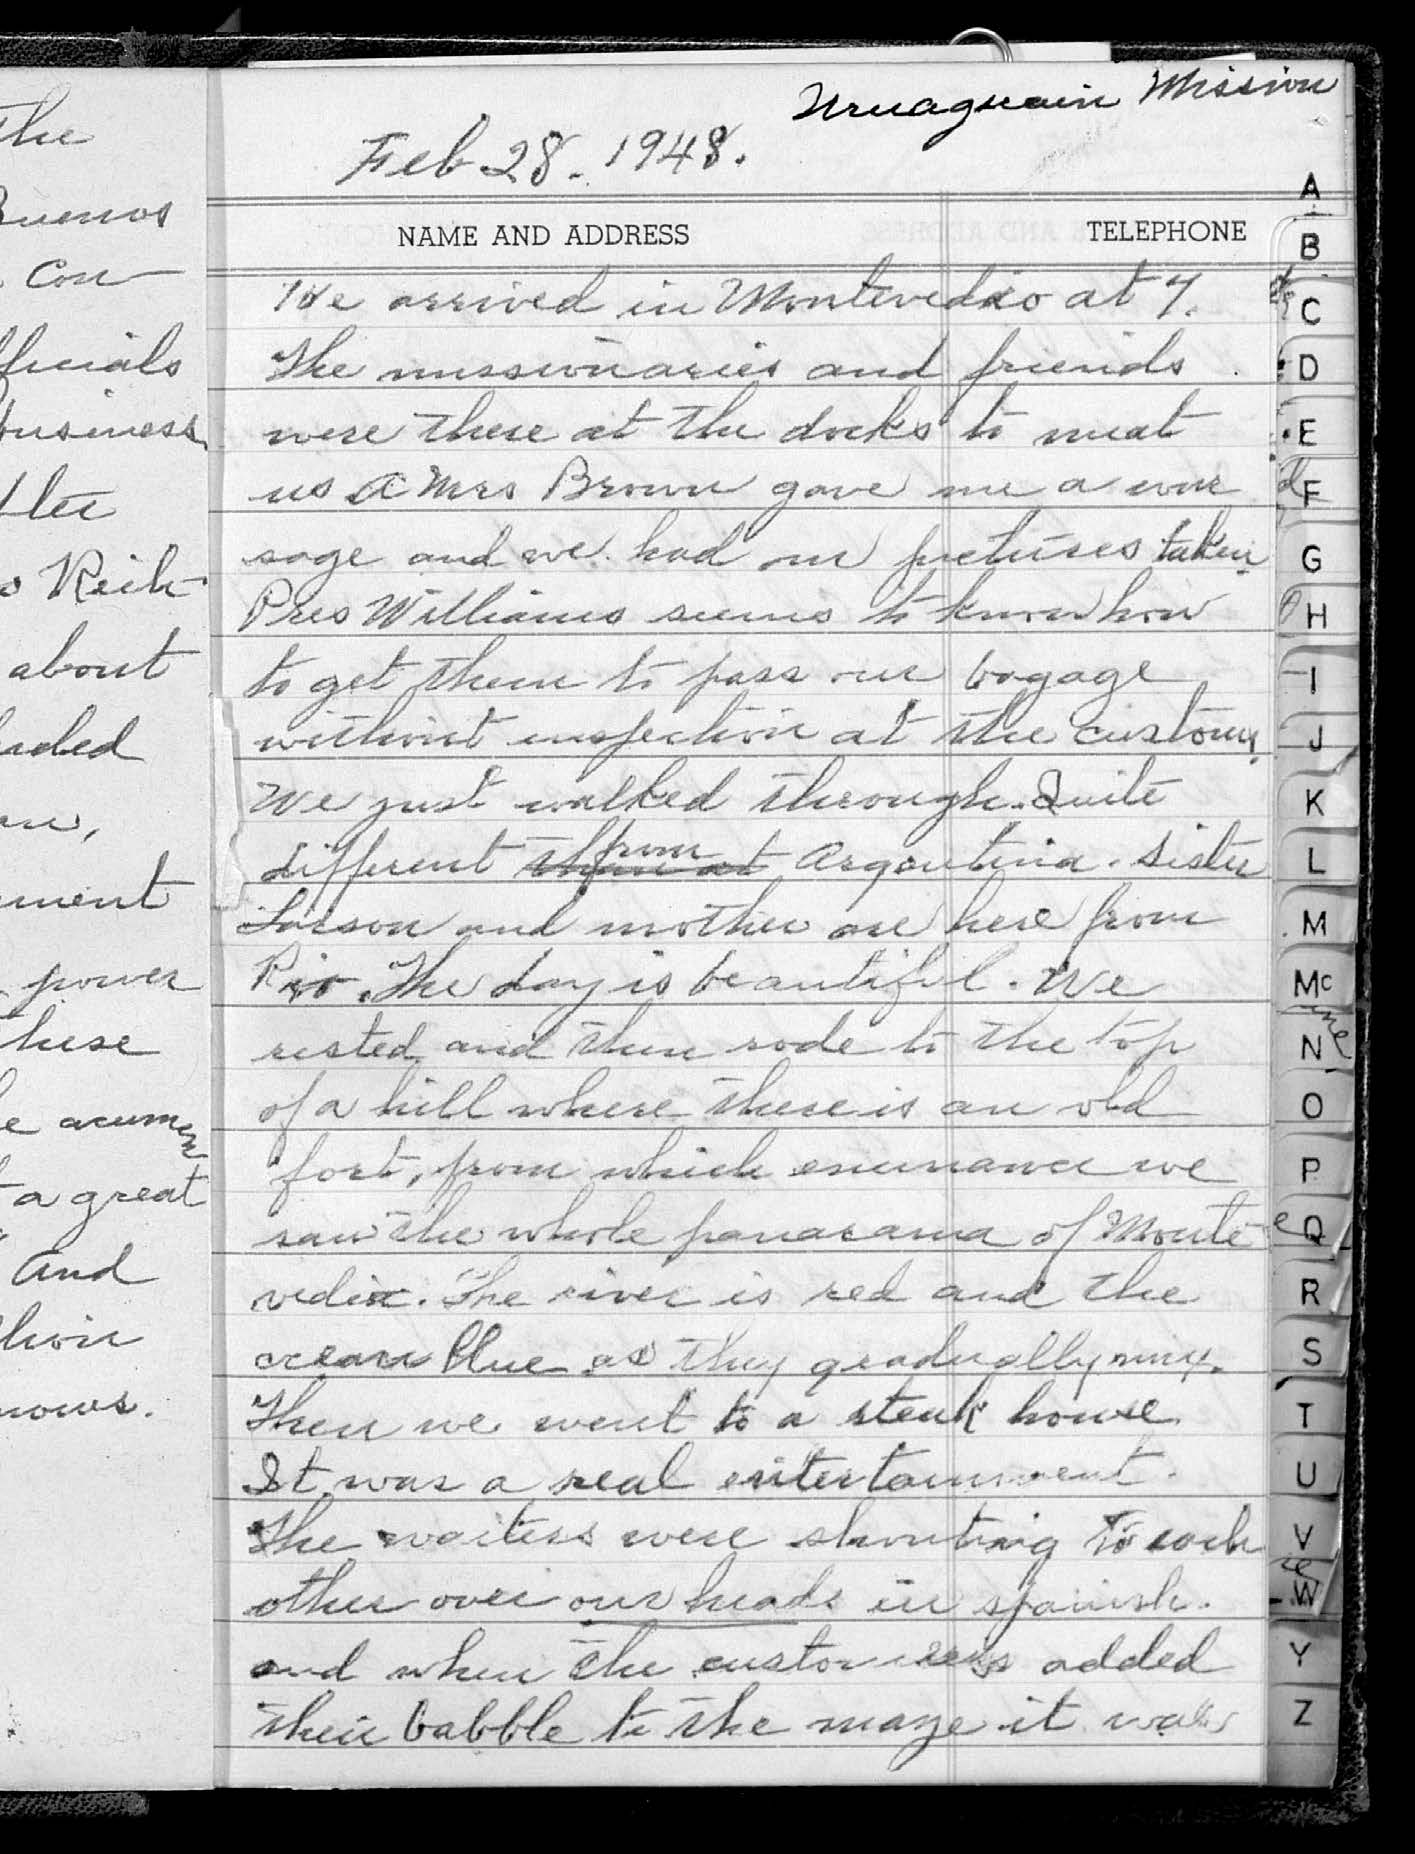 the
Buenos
Con
fficials
business
tler
s Reich
about
nded
ment
power
these
e acumen
t a great
And
thin
nows.
Uruaguain Mission
Feb 28. 1948.
NAME AND ADDRESS TELEPHONE
We arrived in Montevedio at 7.
The missionaries and friends
were there at the docks to meat
us A Mrs Brown gave me a cor
sage and we had our pictures taken
Pres Williams seems to know how
to get them to pass our bagage
without inspection at the customs
We just walked through. Quite
different from Argentina. Sister
Larson and mother are here from
Rio. The day is beautiful. We
rested and then rode to the top
of a hill where there is an old
fort, from which emmanance we
saw the whole panarama of Monte
vedio. The river is red and the
ocean blue as they gradually mix.
Then we went to a steak house
It was a real entertainment.
The waiters were shouting to each
other over our heads in spanish.
and when the customers added
their babble to the maze it was
A
B
C
D
E
F
G
H
I
J
K
L
M
Mc
N
O
P
Q
R
S
T
U
V
W
Y
Z